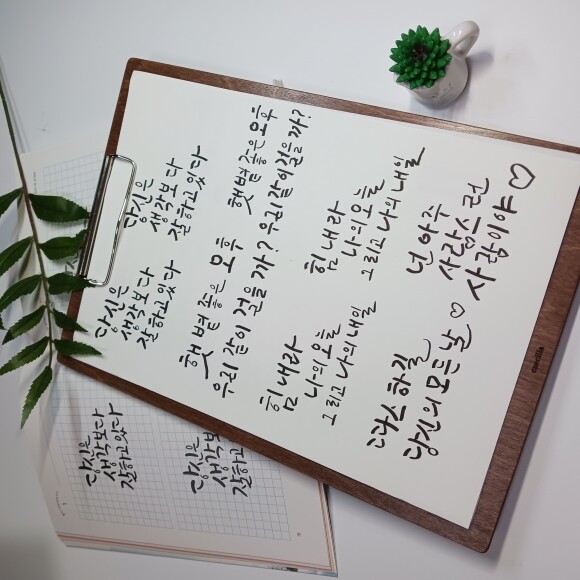 당신은
생각보다
잘하고 있다
당신은
생각보다
잘하고 있다
햇볕 좋은 오후
우리 같이 걸을까?
햇볕 좋은 오후
우리 같이 걸을까?
힘내라
나의 오늘
그리고 나의 내일
힘내라
나의 오늘
그리고 나의 내일
따스하길
당신의 모든 날 ♡
넌 아주
사랑스런
사람이야 ♡
당신은
생각보다
잘하고 있다
당신은
생각보
잘하고